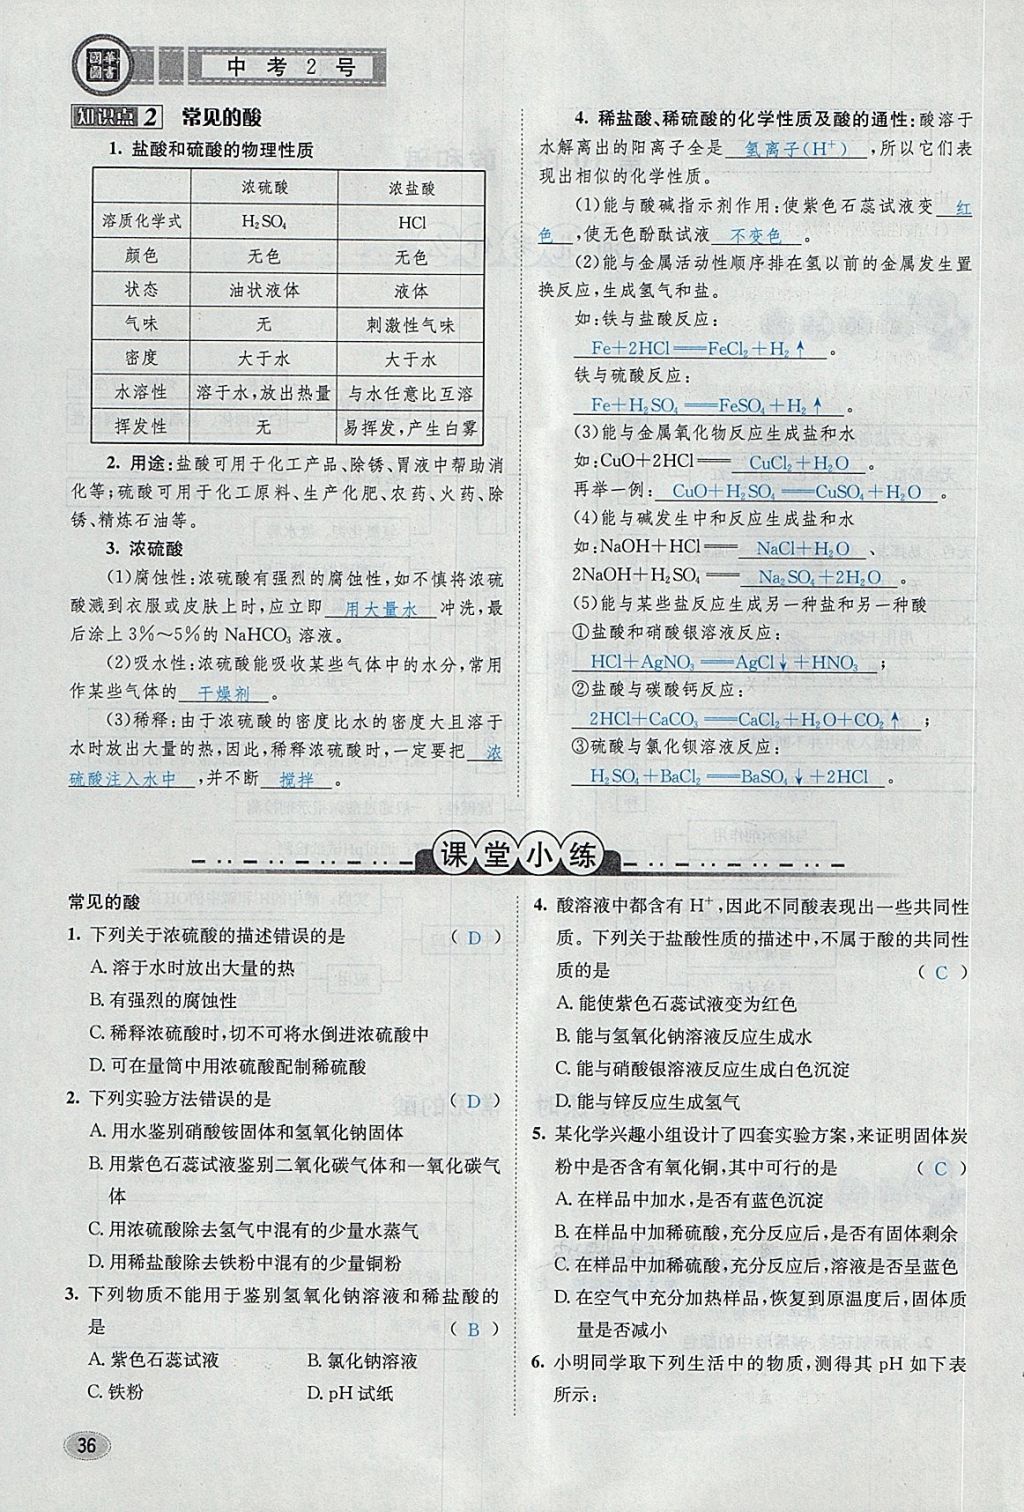 中考2号
知识点2 常见的酸
1. 盐酸和硫酸的物理性质
浓硫酸 浓盐酸
溶质化学式 H₂SO₄ HCl
颜色 无色 无色
状态 油状液体 液体
气味 无 刺激性气味
密度 大于水 大于水
水溶性 溶于水,放出热量 与水任意比互溶
挥发性 无 易挥发,产生白雾
2. 用途:盐酸可用于化工产品、除锈、胃液中帮助消
化等;硫酸可用于化工原料、生产化肥、农药、火药、除
锈、精炼石油等。
3. 浓硫酸
(1)腐蚀性:浓硫酸有强烈的腐蚀性,如不慎将浓硫
酸溅到衣服或皮肤上时,应立即 用大量水 冲洗,最
后涂上3%~5%的NaHCO₃溶液。
(2)吸水性:浓硫酸能吸收某些气体中的水分,常用
作某些气体的 干燥剂 。
(3)稀释:由于浓硫酸的密度比水的密度大且溶于
水时放出大量的热,因此,稀释浓硫酸时,一定要把 浓
硫酸注入水中 ,并不断 搅拌 。
4. 稀盐酸、稀硫酸的化学性质及酸的通性:酸溶于
水解离出的阳离子全是 氢离子(H⁺) ,所以它们表
现出相似的化学性质。
(1)能与酸碱指示剂作用:使紫色石蕊试液变 红
色 ,使无色酚酞试液 不变色 。
(2)能与金属活动性顺序排在氢以前的金属发生置
换反应,生成氢气和盐。
如:铁与盐酸反应:
Fe+2HCl══FeCl₂+H₂↑ 。
铁与硫酸反应:
Fe+H₂SO₄══FeSO₄+H₂↑ 。
(3)能与金属氧化物反应生成盐和水
如:CuO+2HCl══ CuCl₂+H₂O 。
再举一例: CuO+H₂SO₄══CuSO₄+H₂O 。
(4)能与碱发生中和反应生成盐和水
如:NaOH+HCl══ NaCl+H₂O 、
2NaOH+H₂SO₄══ Na₂SO₄+2H₂O 。
(5)能与某些盐反应生成另一种盐和另一种酸
①盐酸和硝酸银溶液反应:
HCl+AgNO₃══AgCl↓+HNO₃ ;
②盐酸与碳酸钙反应:
2HCl+CaCO₃══CaCl₂+H₂O+CO₂↑ ;
③硫酸与氯化钡溶液反应:
H₂SO₄+BaCl₂══BaSO₄↓+2HCl 。
课堂小练
常见的酸
1. 下列关于浓硫酸的描述错误的是 ( D )
A. 溶于水时放出大量的热
B. 有强烈的腐蚀性
C. 稀释浓硫酸时,切不可将水倒进浓硫酸中
D. 可在量筒中用浓硫酸配制稀硫酸
2. 下列实验方法错误的是 ( D )
A. 用水鉴别硝酸铵固体和氢氧化钠固体
B. 用紫色石蕊试液鉴别二氧化碳气体和一氧化碳气
体
C. 用浓硫酸除去氢气中混有的少量水蒸气
D. 用稀盐酸除去铁粉中混有的少量铜粉
3. 下列物质不能用于鉴别氢氧化钠溶液和稀盐酸的
是 ( B )
A. 紫色石蕊试液 B. 氯化钠溶液
C. 铁粉 D. pH试纸
4. 酸溶液中都含有H⁺,因此不同酸表现出一些共同性
质。下列关于盐酸性质的描述中,不属于酸的共同性
质的是 ( C )
A. 能使紫色石蕊试液变为红色
B. 能与氢氧化钠溶液反应生成水
C. 能与硝酸银溶液反应生成白色沉淀
D. 能与锌反应生成氢气
5. 某化学兴趣小组设计了四套实验方案,来证明固体炭
粉中是否含有氧化铜,其中可行的是 ( C )
A. 在样品中加水,是否有蓝色沉淀
B. 在样品中加稀硫酸,充分反应后,是否有固体剩余
C. 在样品中加稀硫酸,充分反应后,溶液是否呈蓝色
D. 在空气中充分加热样品,恢复到原温度后,固体质
量是否减小
6. 小明同学取下列生活中的物质,测得其pH如下表
所示:
36